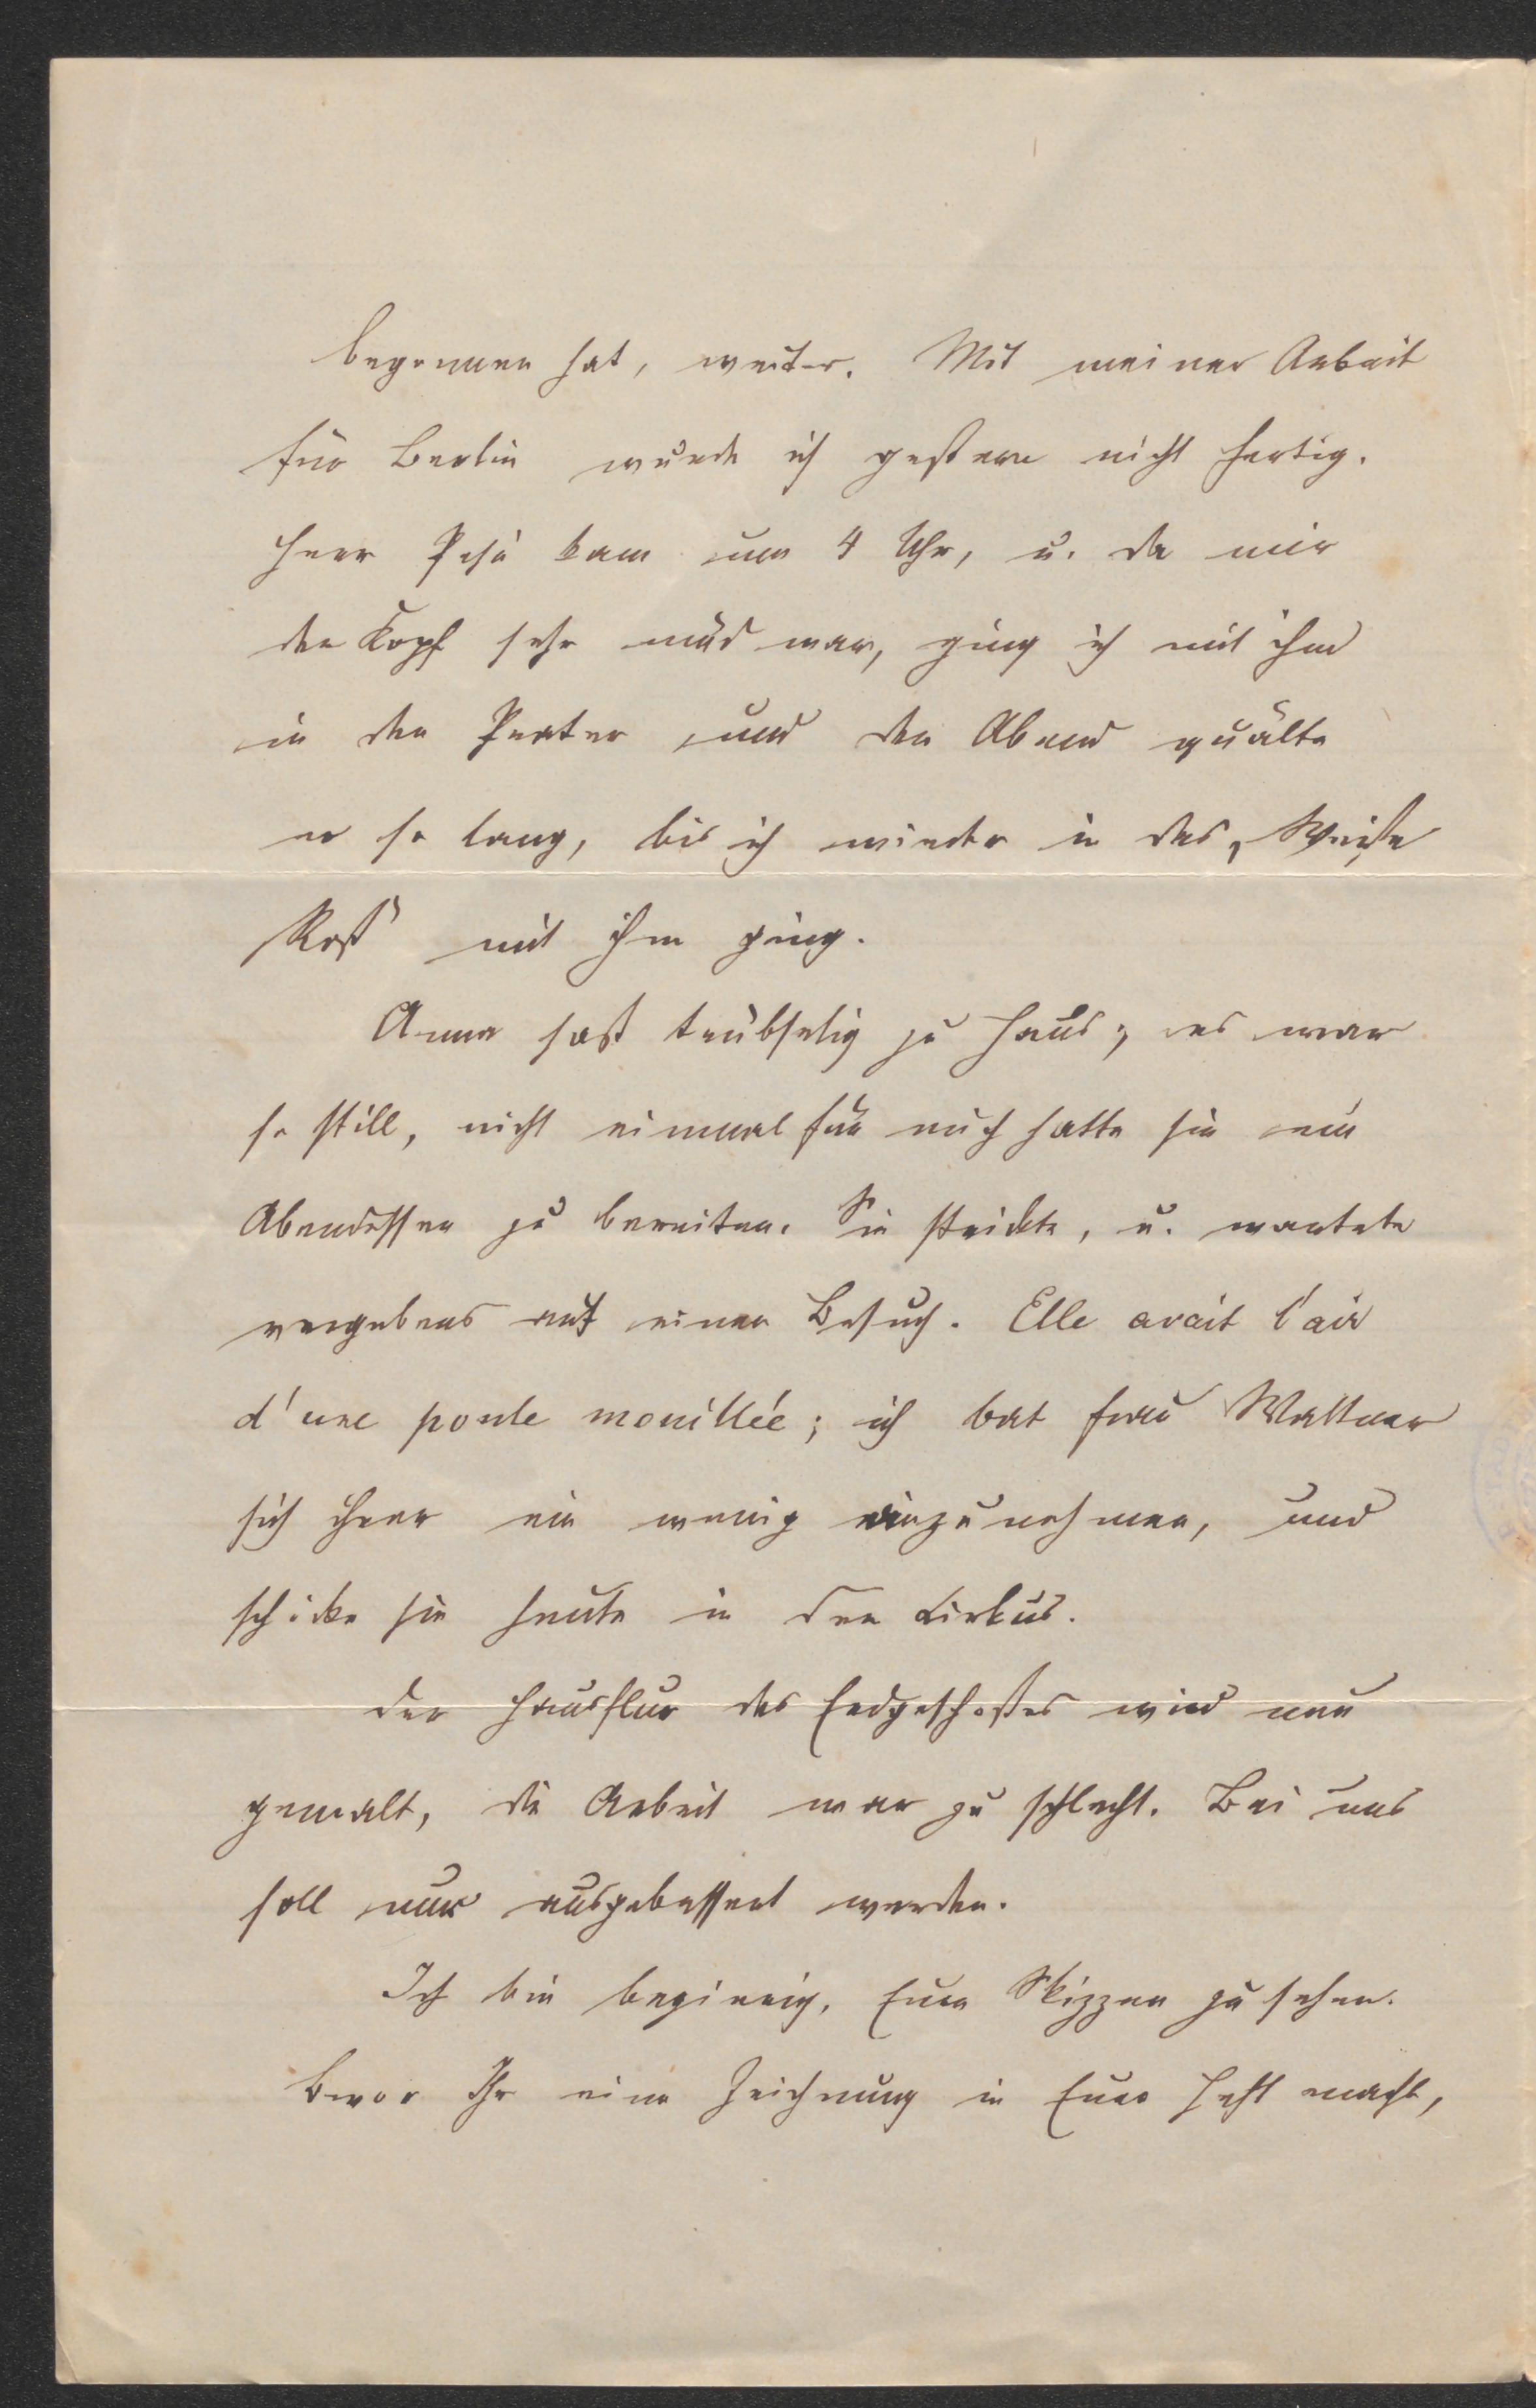 begonnen hat, weiter. Mit meiner Arbeit
für Berlin wurde ich gestern nicht fertig.
Herr kam um 4 Uhr, u. da mir
der Kopf sehr müd war, ging ich mit ihm
in den Prater und den Abend quälte
er so lang, bis ich wieder in das „Weiße
Roß" mit ihm ging.
Anna saß trübselig zu Haus; es war
so still, nicht einmal für mich hatte sie ein
Abendessen zu bereiten. Sie strickte, u. wartete
vergebens auf einen Besuch. Elle avait l'air
d'une poule mouillée; ich bat Frau Waltner
sich ihrer ein wenig anzunehmen, und
schicke sie heute in den Cirkus.
Der Hausflur des Erdgeschoßes wird neu
gemalt, die Arbeit war zu schlecht. Bei uns
soll nur ausgebessert werden.
Ich bin begierig, Eure Skizzen zu sehen.
Bevor Ihr eine Zeichnung in Euer Heft macht,